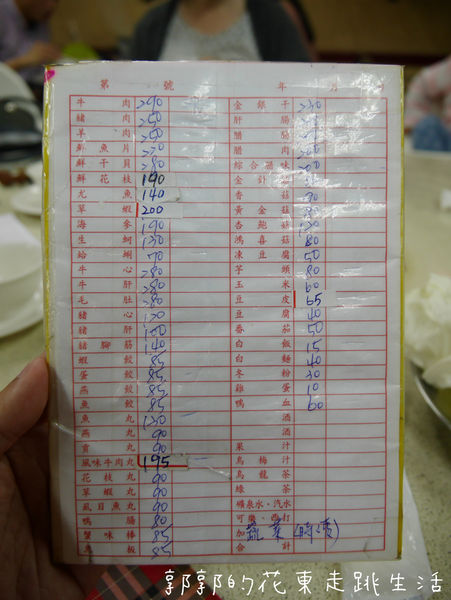 第 號 年 月
牛肉 290
豬肉 250
羊肉 250
鮮魚片 220
鮮干貝 280
鮮花枝 190
尤魚 140
草蝦 200
海參 190
生蚵 130
蛤蜊 70
牛心 280
牛肝 280
毛肚 280
豬心 120
豬肝
豬腳筋 140
蝦餃 85
蛋餃 85
燕餃 85
魚餃 85
魚丸 130
燕丸 90
貢丸 90
風味牛肉丸 195
花枝丸 90
草蝦丸 90
虱目魚丸 90
鴨腸 80
蟹味棒 85
魚板 85
金銀干 230
肝腸
腊腸
腊肉 200
綜合腊味
金針菇
香菇 90
黃金菇
杏鮑菇 130
鴻喜菇 80
凍豆腐 50
芋頭 80
玉米 60
豆皮 65
豆腐 40
番茄 50
白飯 15
白麵 40
冬粉 30
雞蛋 10
鴨血 60
酒
酒
果汁
烏梅汁
烏龍茶
綠茶
礦泉水·汽水
可樂
加 蔬菜(時價)
合計
郭郭的花東走跳生活